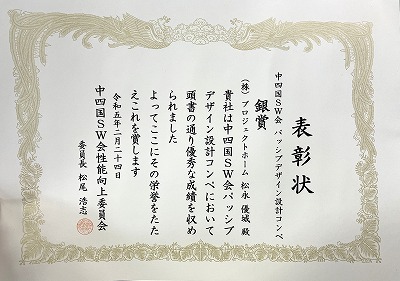 表彰状
中四国SW会 パッシブデザイン設計コンペ
銀賞
(株)プロジェクトホーム 松永 優城 殿
貴社は中四国SW会パッシブ
デザイン設計コンペにおいて
頭書の通り優秀な成績を収め
られました
よってここにその栄誉をたた
えこれを賞します
令和五年二月二十四日
中四国SW会性能向上委員会
委員長 松尾 浩志